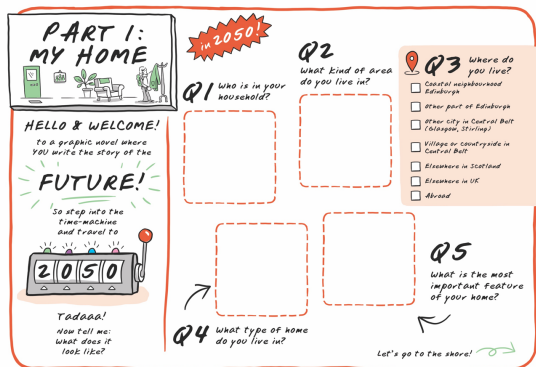 PART 1:
MY HOME
HELLO & WELCOME!
to a graphic novel where
YOU write the story of the
FUTURE!
So step into the
time-machine
and travel to
2050
Tadaaa!
Now tell me:
What does it
look like?
in 2050!
Q1 Who is in your
household?
Q2
What kind of area
do you live in?
Q3 Where do
you live?
Coastal neighbourhood
Edinburgh
Other part of Edinburgh
Other city in Central Belt
(Glasgow, Stirling)
Village or countryside in
Central Belt
Elsewhere in Scotland
Elsewhere in UK
Abroad
Q4 What type of home
do you live in?
Q5
What is the most
important feature
of your home?
Let's go to the shore!